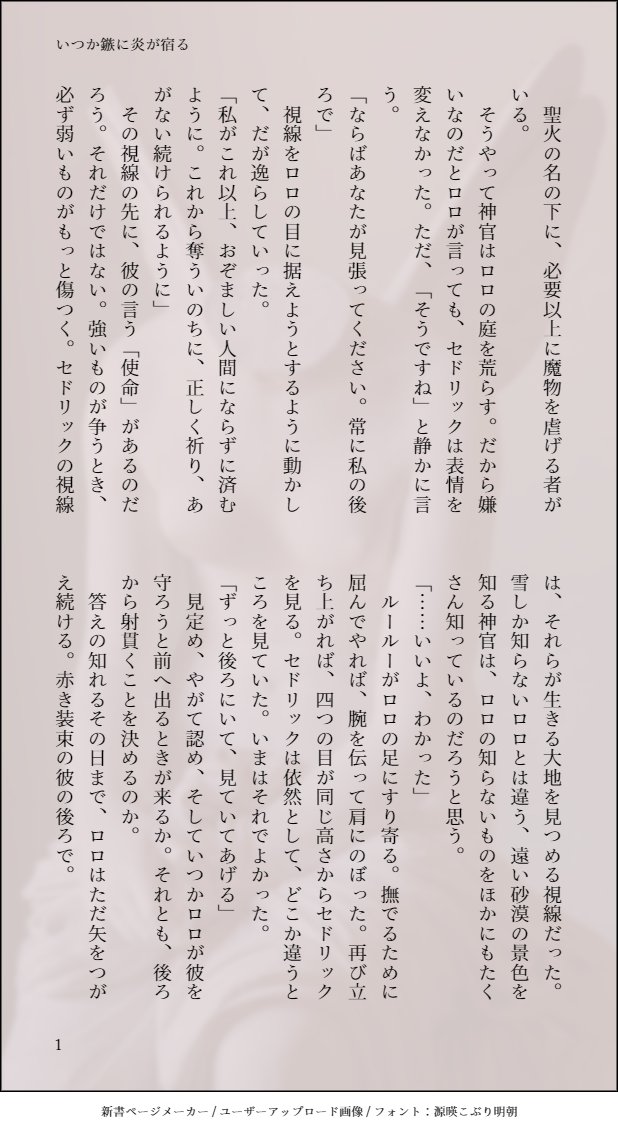 いつか鏃に炎が宿る
　聖火の名の下に、必要以上に魔物を虐げる者が
いる。
　そうやって神官はロロの庭を荒らす。だから嫌
いなのだとロロが言っても、セドリックは表情を
変えなかった。ただ、「そうですね」と静かに言
う。
「ならばあなたが見張ってください。常に私の後
ろで」
　視線をロロの目に据えようとするように動かし
て、だが逸らしていった。
「私がこれ以上、おぞましい人間にならずに済む
ように。これから奪ういのちに、正しく祈り、あ
がない続けられるように」
　その視線の先に、彼の言う「使命」があるのだ
ろう。それだけではない。強いものが争うとき、
必ず弱いものがもっと傷つく。セドリックの視線
は、それらが生きる大地を見つめる視線だった。
雪しか知らないロロとは違う、遠い砂漠の景色を
知る神官は、ロロの知らないものをほかにもたく
さん知っているのだろうと思う。
「……いいよ、わかった」
　ルールーがロロの足にすり寄る。撫でるために
屈んでやれば、腕を伝って肩にのぼった。再び立
ち上がれば、四つの目が同じ高さからセドリック
を見る。セドリックは依然として、どこか違うと
ころを見ていた。いまはそれでよかった。
「ずっと後ろにいて、見ていてあげる」
　見定め、やがて認め、そしていつかロロが彼を
守ろうと前へ出るときが来るか。それとも、後ろ
から射貫くことを決めるのか。
　答えの知れるその日まで、ロロはただ矢をつが
え続ける。赤き装束の彼の後ろで。
1
新書ページメーカー / ユーザーアップロード画像 / フォント：源暎こぶり明朝